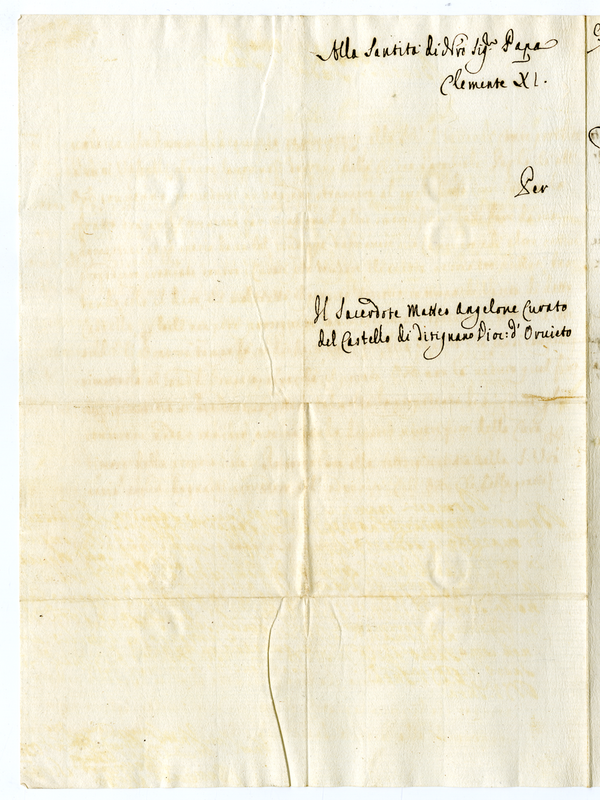 Alla Santità di Nrõ Sigre Papa
Clemente XI.
Per
Il Sacerdote Matteo Angelone Curato
del Castello di Titignano Dioc: d' Orvieto